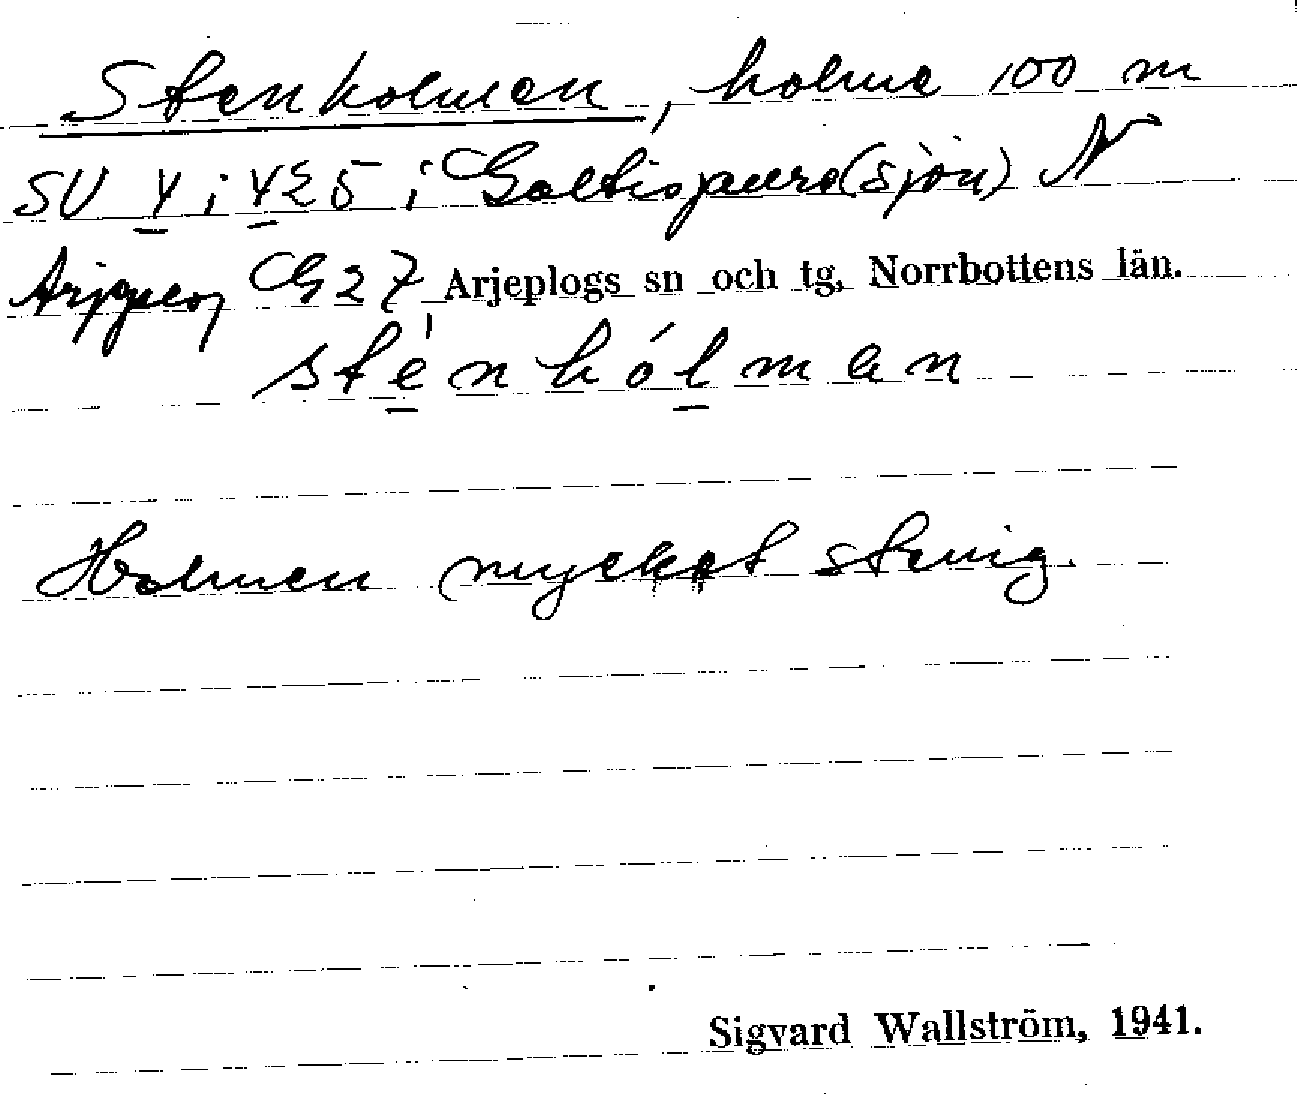 Stenholmen, holme 100 m
SV 4 i 425 i Galtisjaure(sjön) N
Arjeplog G27 Arjeplogs sn och tg, Norrbottens län.
sténhólman
Holmen mycket stenig.
Sigvard Wallström, 1941.